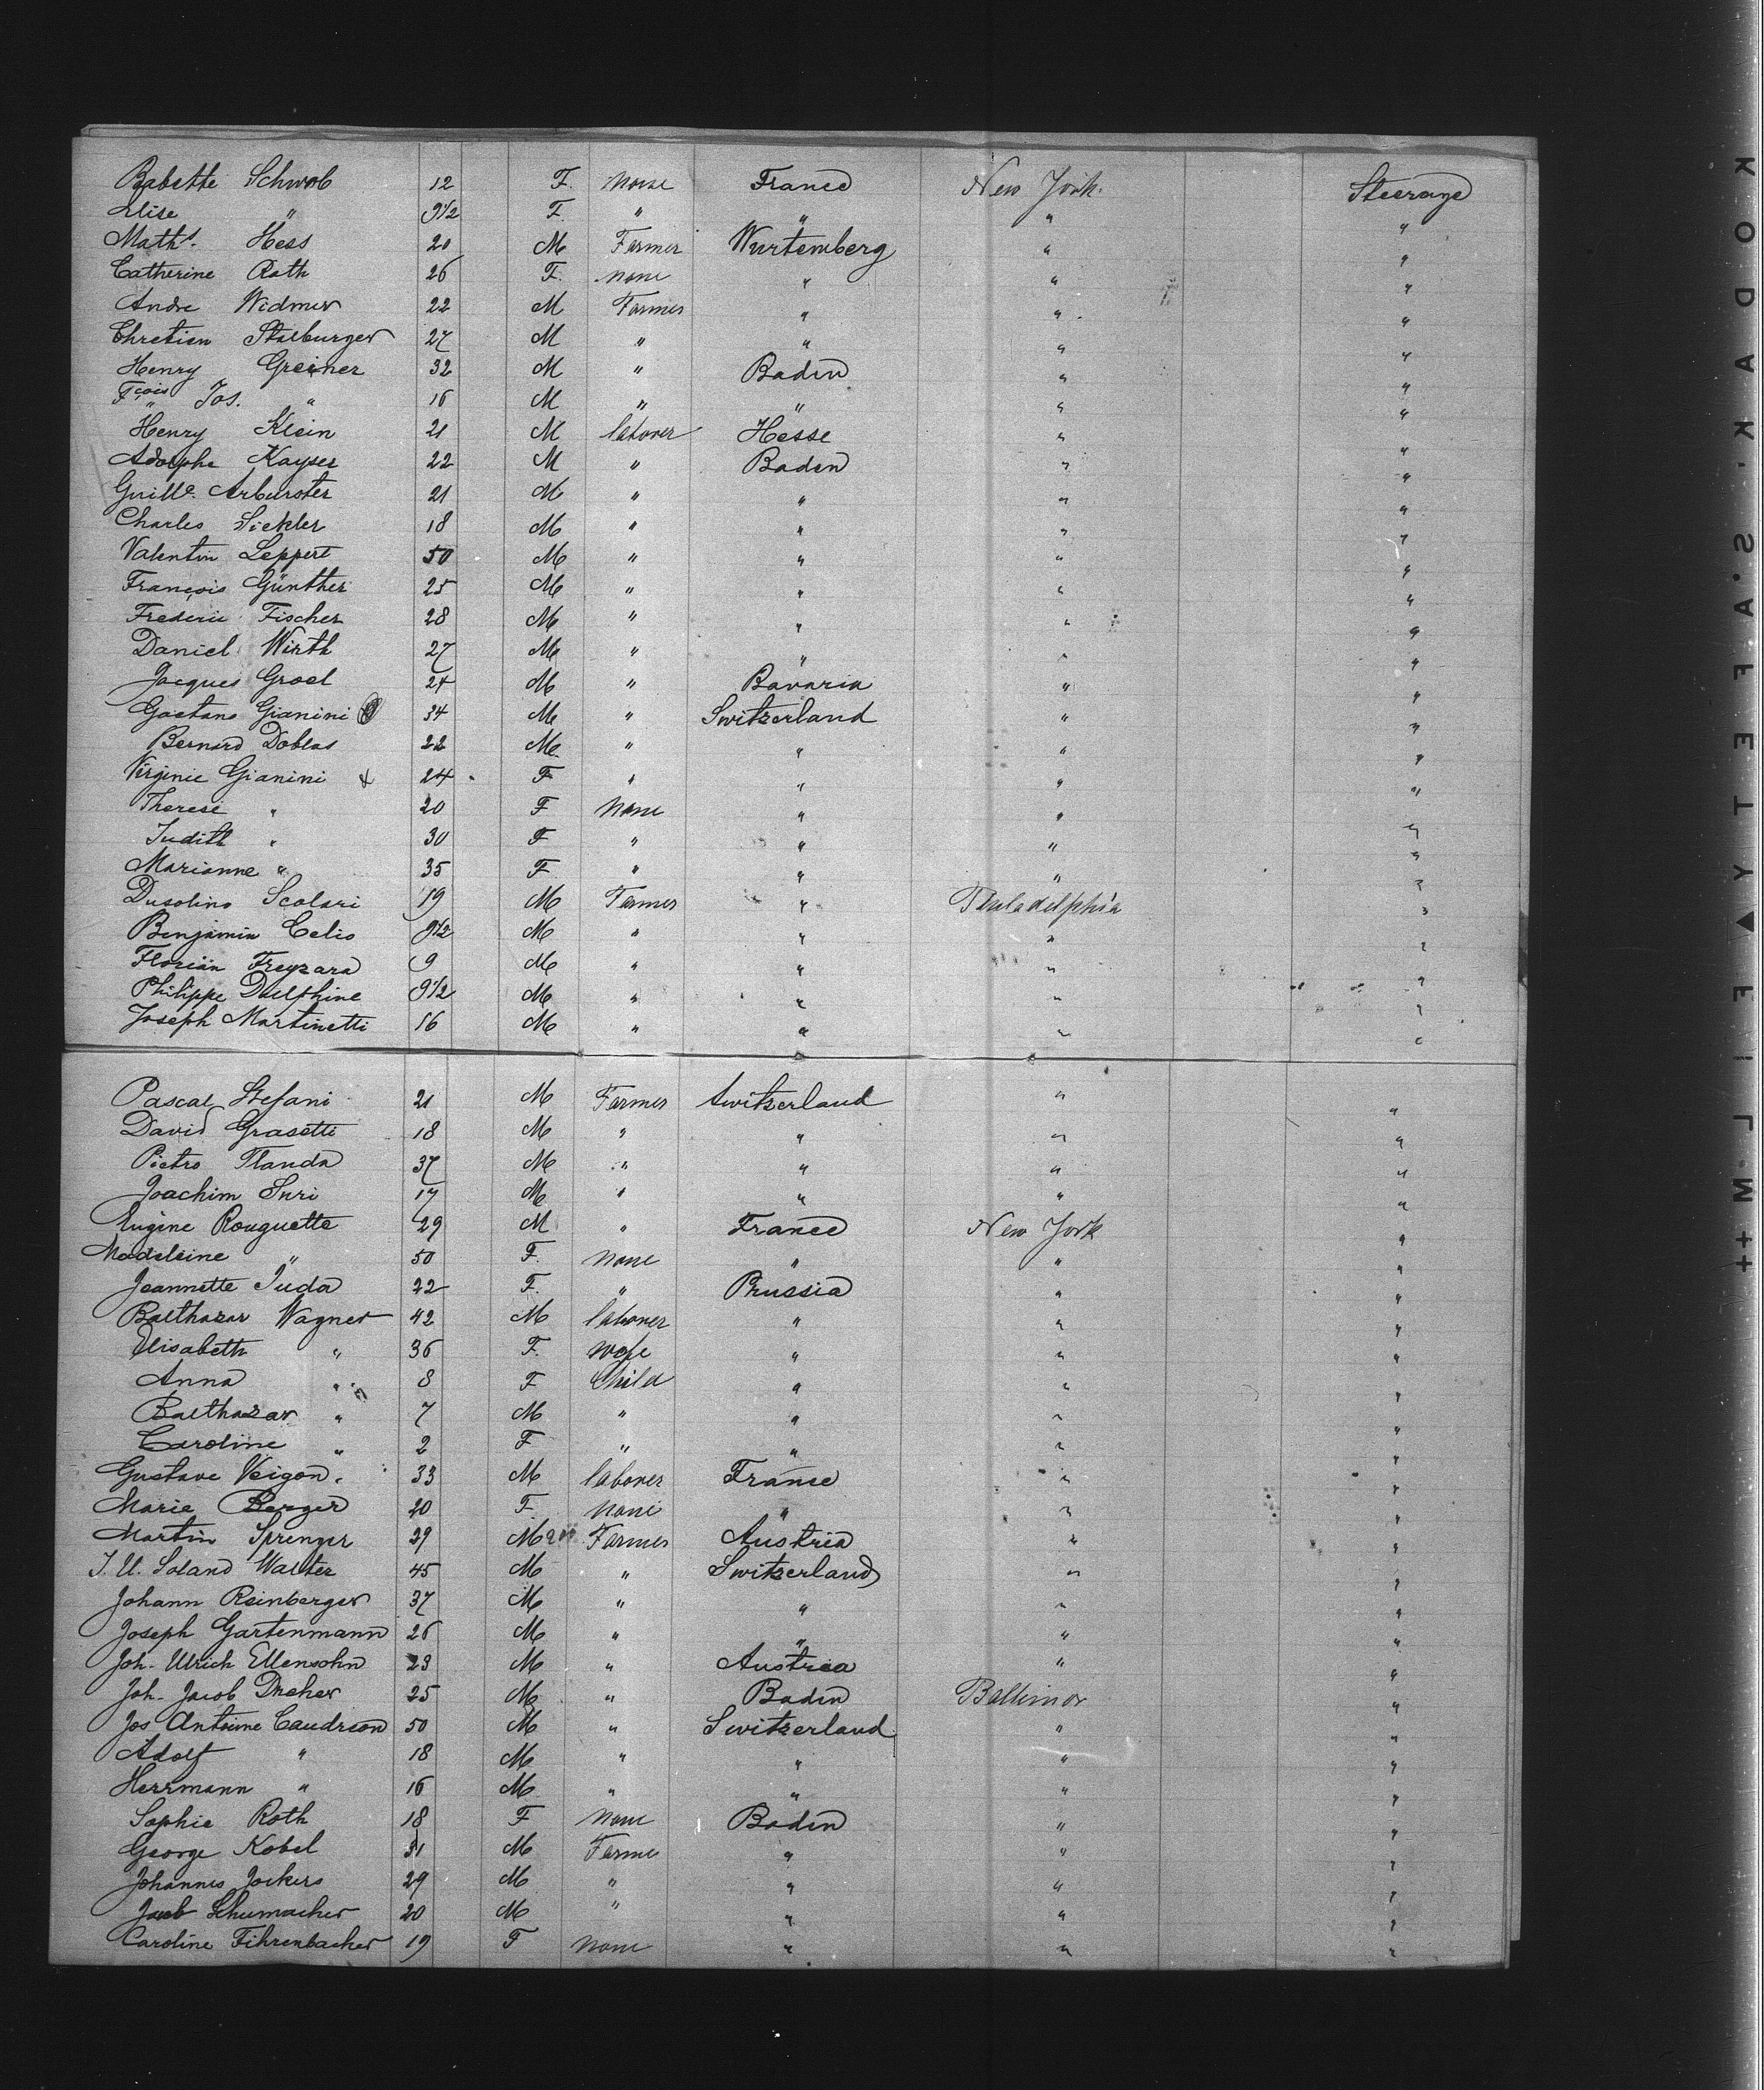 Babette Schwob 12 F. none France New York Steerage
Elise " 9 1/2 F. " " " "
Maths. Hess 20 M Farmer Wurtemberg " "
Catherine Roth 26 F. none " " "
Andre Widmer 22 M Farmer " " "
Chretien Stalburger 27 M " " " "
Henry Greiner 32 M " Baden " "
Fçois Jos. " 16 M " " " "
Henry Klein 21 M laborer Hesse " "
Adolphe Kayser 22 M " Baden " "
Guille. Arburster 21 M " " " "
Charles Sickler 18 M " " " "
Valentin Leppert 50 M " " " "
François Günther 25 M " " " "
Frederic Fischer 28 M " " " "
Daniel Wirth 27 M " " " "
Jacques Groel 24 M " Bavaria " "
Gaetano Gianini 34 M " Switzerland " "
Bernard Doblas 22 M " " " "
Virginie Gianini x 24 F " " " "
Therese " 20 F none " " "
Judith " 30 F " " " "
Marianne " 35 F " " " "
Dusolino Scolari 19 M Farmer " Philadelphia "
Benjamin Celio 9 1/2 M " " " "
Florian Freyzara 9 M " " " "
Philippe Duelphine 9 1/2 M " " " "
Joseph Martinetti 16 M " " " "
Pascal Stefani 21 M Farmer Switzerland " "
David Grasetti 18 M " " " "
Pietro Tlanda 37 M " " " "
Joachim Suri 17 M " " " "
Eugène Rouguette 29 M " France New York "
Madeleine " 50 F. none " " "
Jeannette Juda 22 F. " Prussia " "
Balthazar Wagner 42 M laborer " " "
Elisabeth " 36 F. wife " " "
Anna " 8 F Child " " "
Balthazar " 7 M " " " "
Caroline " 2 F " " " "
Gustave Veigon. 33 M laborer France " "
Marie Berger 20 F none " " "
Martin Sprenger 29 M Farmer Austria " "
J. U. Soland Walter 45 M " Switzerland " "
Johann Reinberger 37 M " " " "
Joseph Gartenmann 26 M " " " "
Joh. Ulrich Ellensohn 23 M " Austria " "
Joh. Jacob Dreher 25 M " Baden Baltimor "
Jos Antoine Caudron 50 M " Switzerland " "
Adolf " 18 M " " " "
Herrmann " 16 M " " " "
Sophie Roth 18 F none Baden " "
George Kobel 31 M Farme " " "
Johannes Jockers 29 M " " " "
Jacob Schumacher 20 M " " " "
Caroline Fihrenbacher 19 F none " " "
KODAK·S'AFETY▲FILM·L++